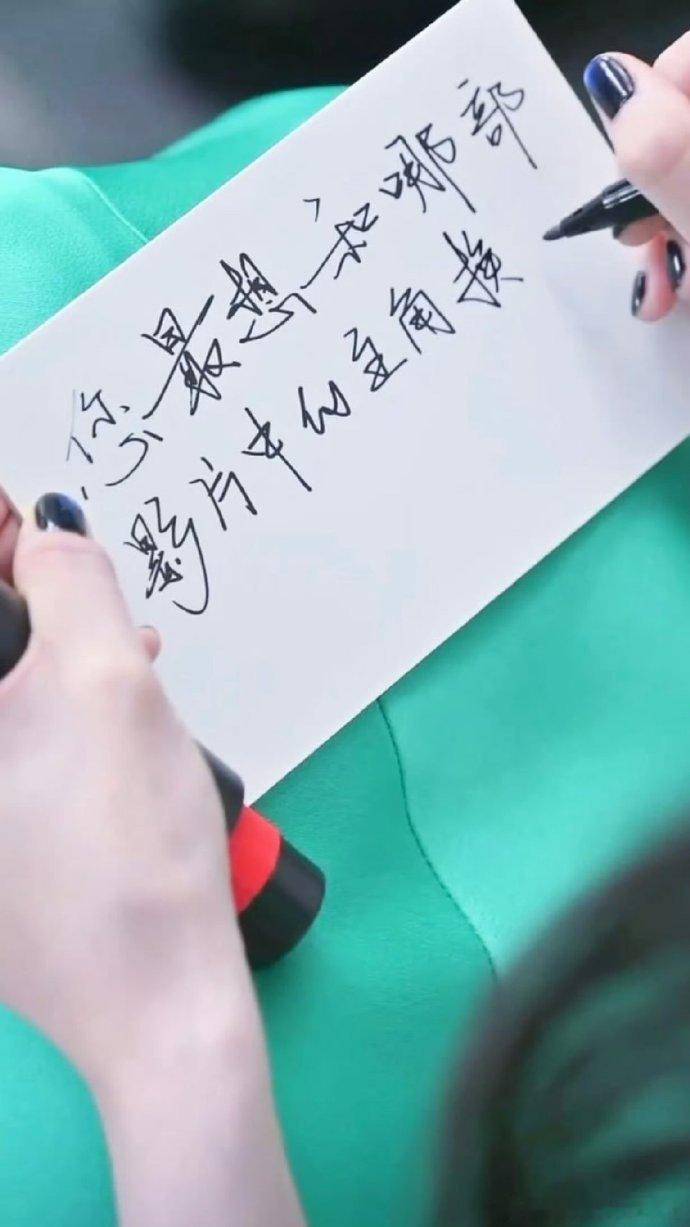 您最想和哪部
影片中的主角换